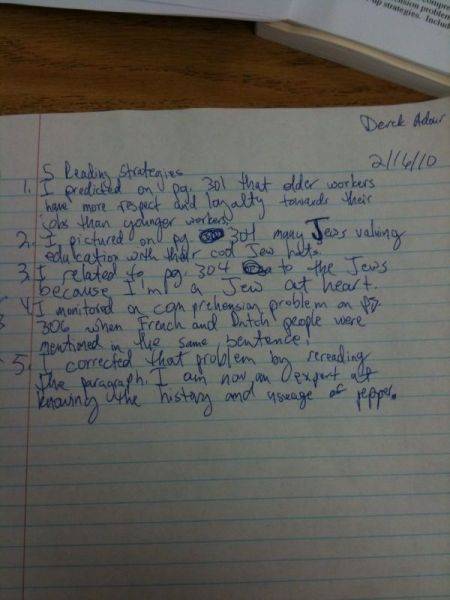 compre
ension problem
up strategies. Includ
Derek Adour
2/16/10
5 Reading Strategies
1. I predicted on pg. 301 that older workers
have more respect and loyalty towards their
jobs than younger workers.
2. I pictured on pg 304 many Jews valuing
education with their cool Jew hats.
3. I related to pg. 304 to the Jews
because I'm a Jew at heart.
4. I monitored a comprehension problem on pg.
306 when French and Dutch people were
mentioned in the same sentence!
5. I corrected that problem by rereading
the paragraph. I am now an expert at
knowing the history and useage of pepper.